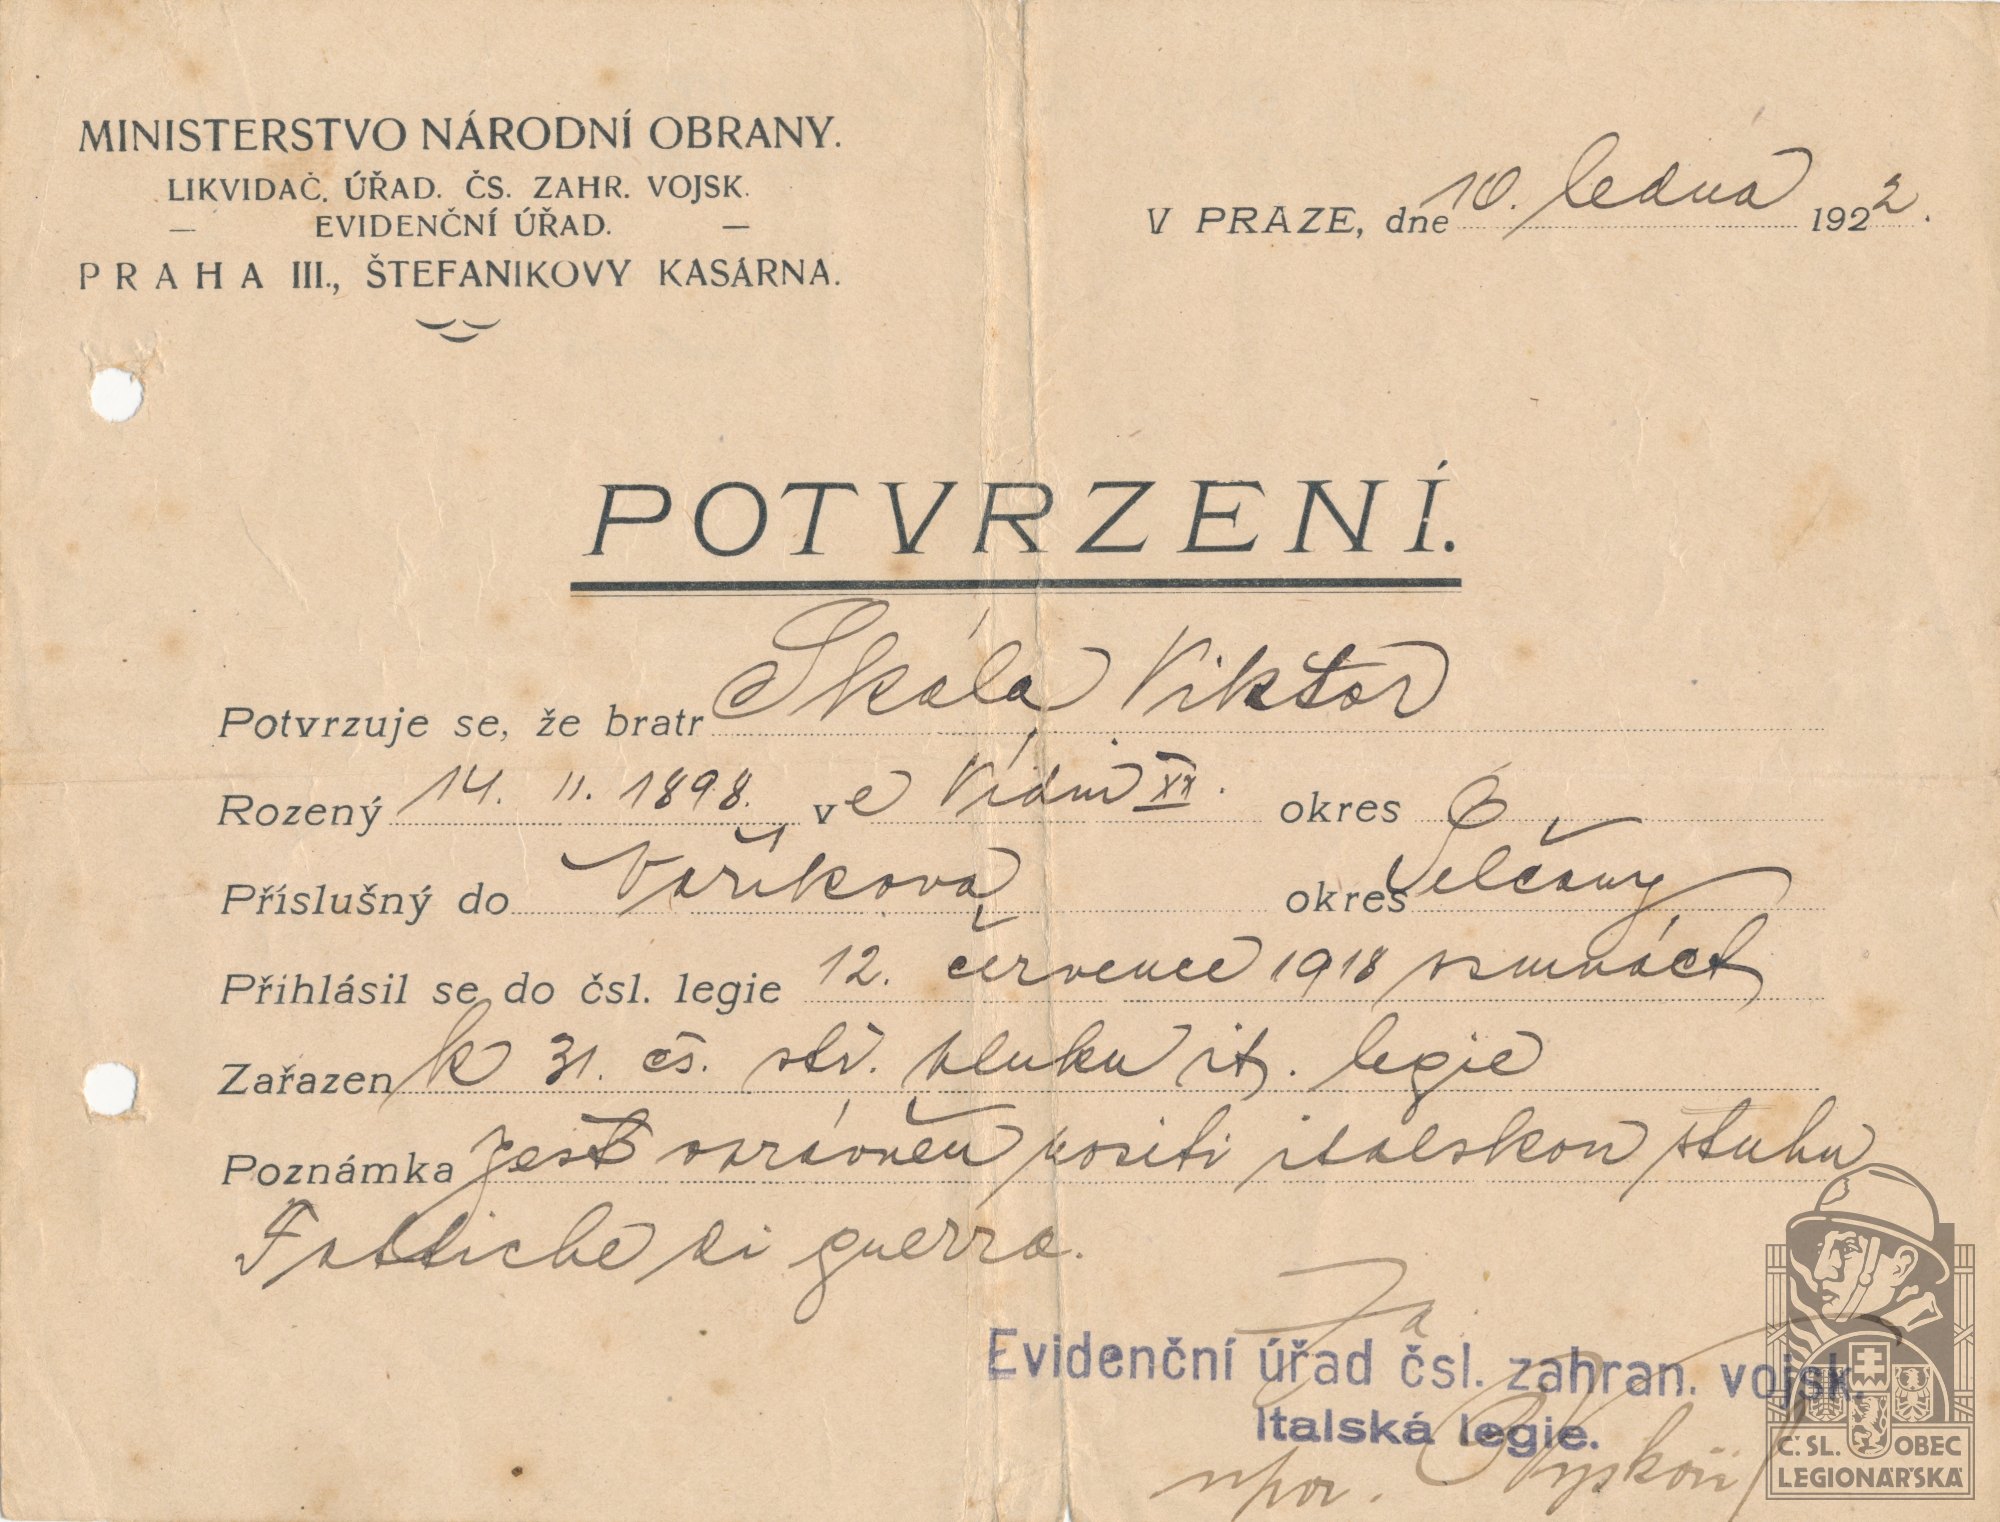 MINISTERSTVO NÁRODNÍ OBRANY.
LIKVIDAČ. ÚŘAD. ČS. ZAHR. VOJSK.
— EVIDENČNÍ ÚŘAD. —
PRAHA III., ŠTEFANIKOVY KASÁRNA.
V PRAZE, dne 10. ledna 1922.
POTVRZENÍ.
Potvrzuje se, že bratr Skála Viktor
Rozený 14. II. 1898. ve Vídni XX. okres
Příslušný do Voříkova okres Selčany
Přihlásil se do čsl. legie 12. července 1918 osmnáct
Zařazen k 31. čs. stř. pluku it. legie
Poznámka jest oprávněn nositi italskou stuhu
Fattiche di guerra.
Za
Evidenční úřad čsl. zahran. vojsk.
Italská legie.
npor.
Č. SL. OBEC
LEGIONÁŘSKÁ